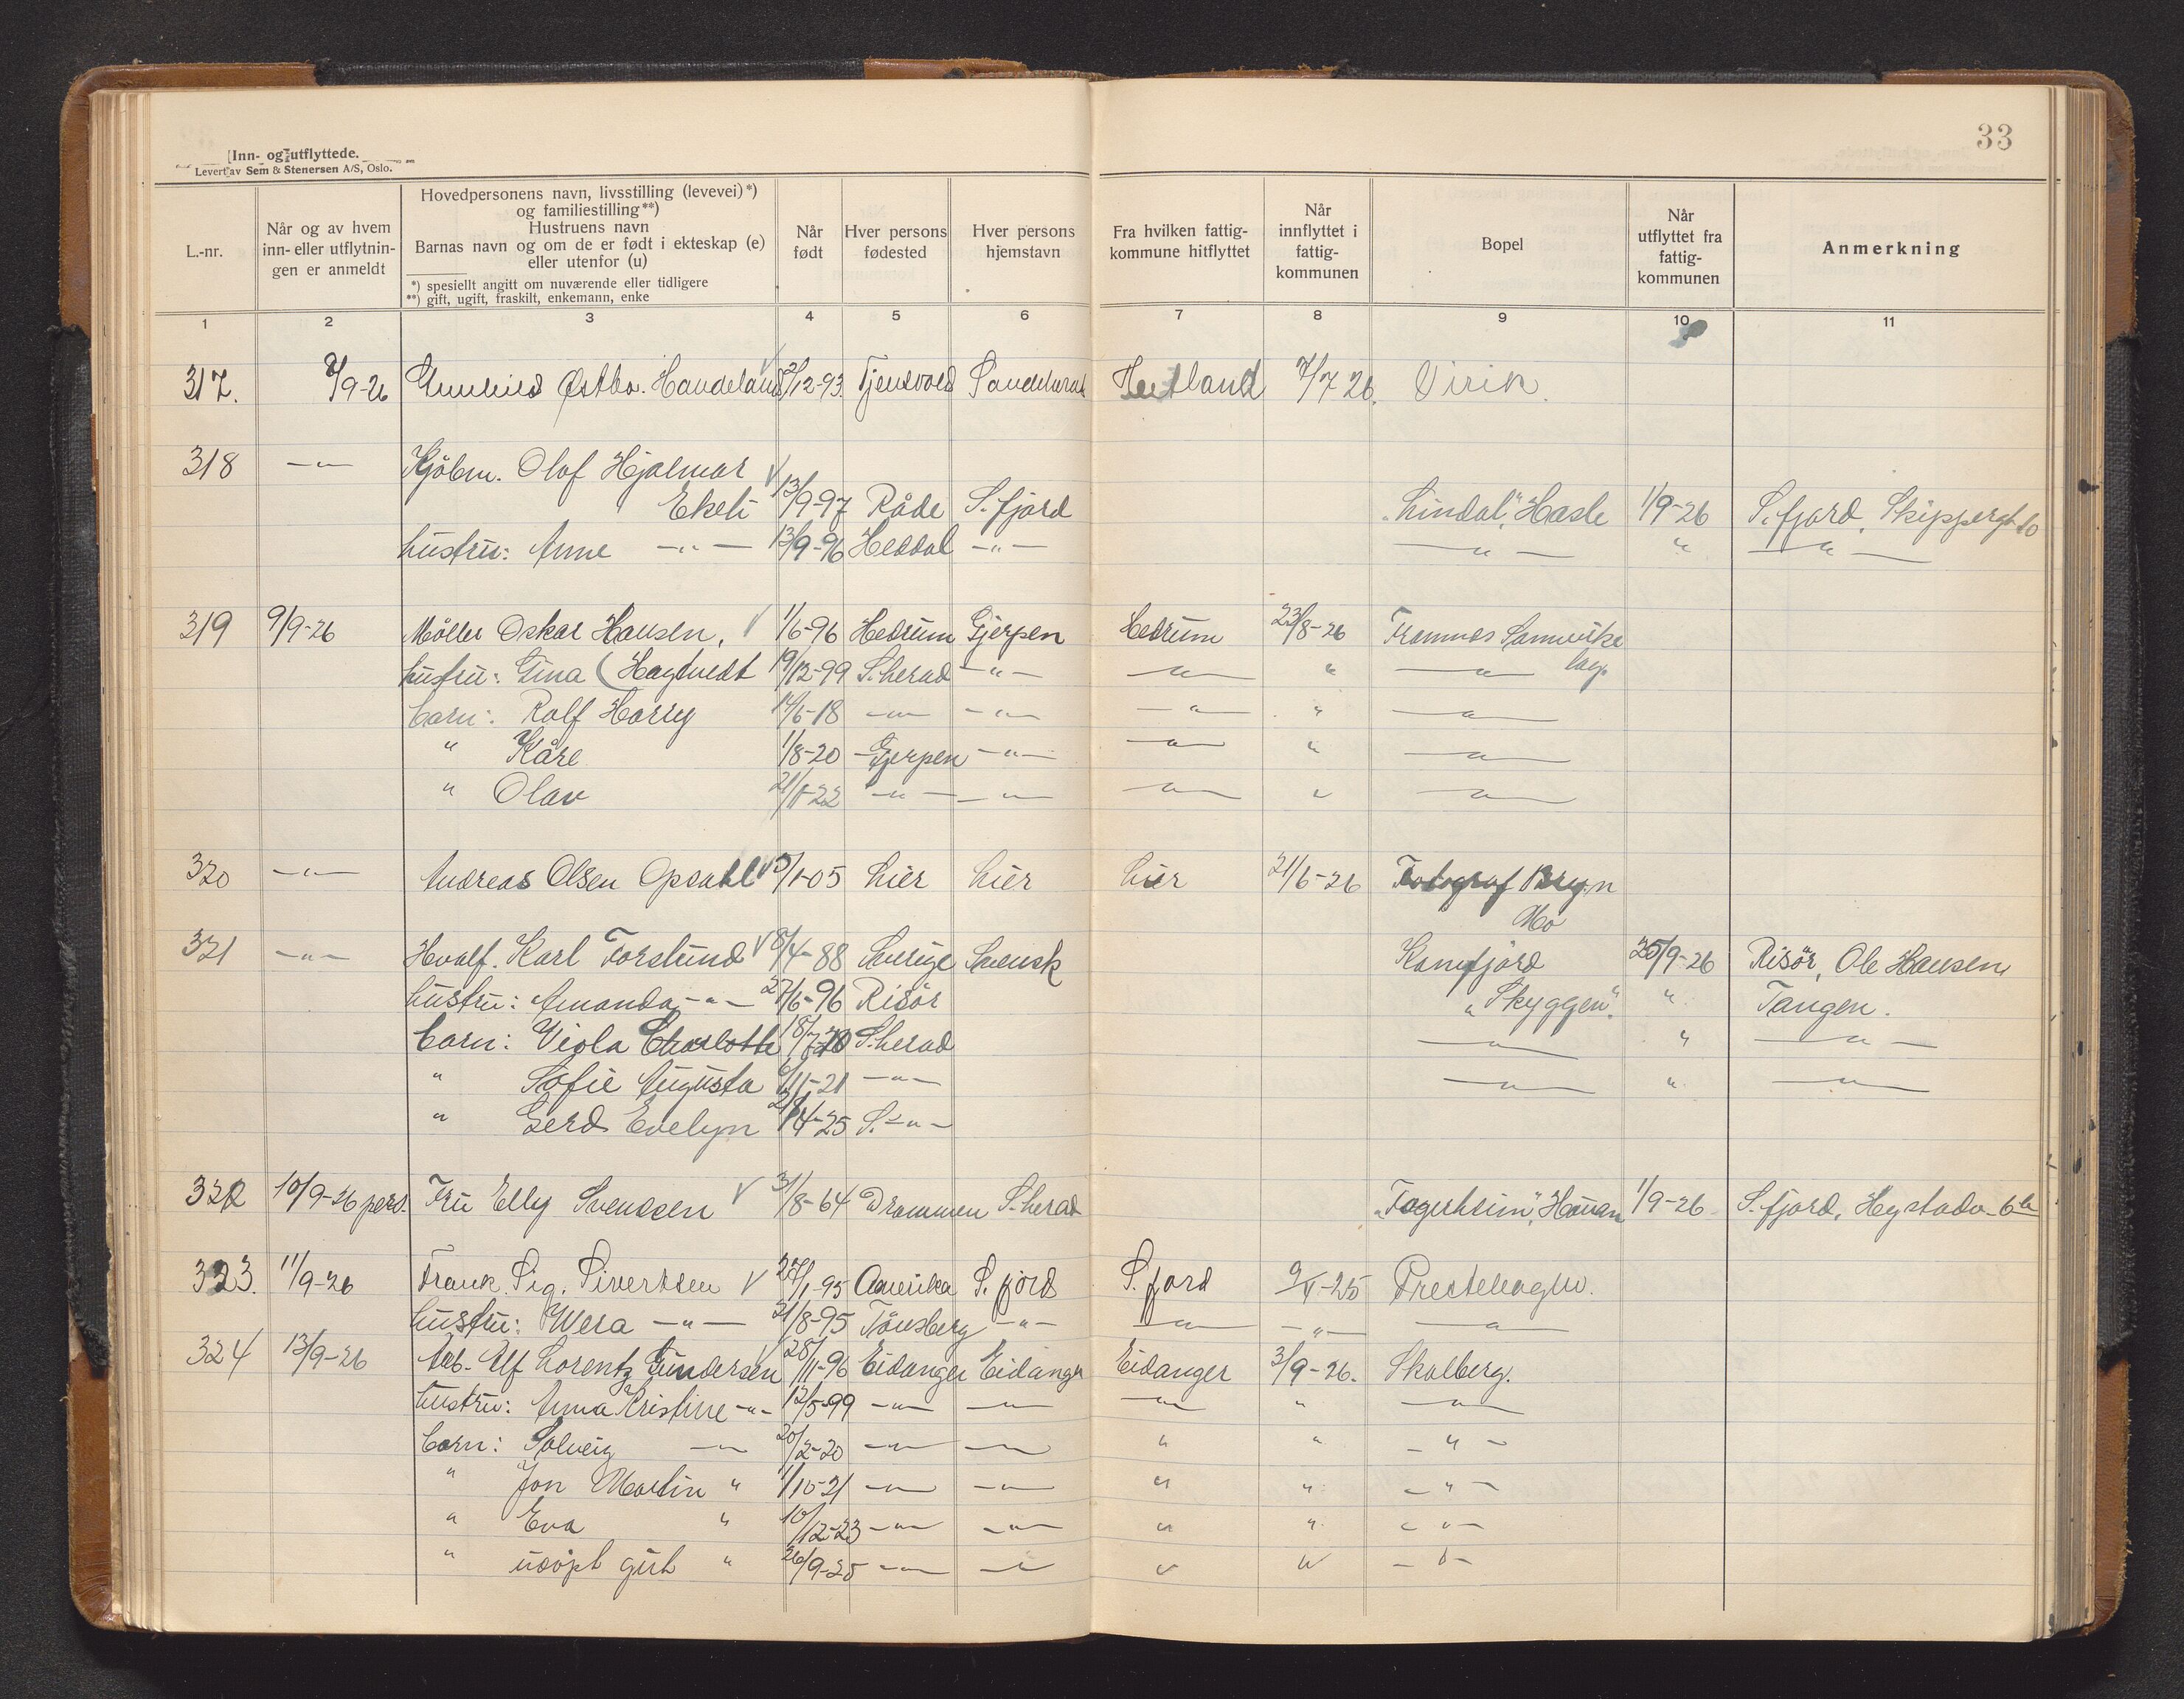 33
Inn- og utflyttede.
Levert av Sem & Stenersen A/S, Oslo.
L.-nr.
Når og av hvem inn- eller utflytnin- gen er anmeldt
Hovedpersonens navn, livsstilling (levevei)*) og familiestilling**)
Hustruens navn
Barnas navn og om de er født i ekteskap (e) eller utenfor (u)
*) spesiellt angitt om nuværende eller tidligere
**) gift, ugift, fraskilt, enkemann, enke
Når født
Hver persons fødested
Hver persons hjemstavn
Fra hvilken fattig- kommune hitflyttet
Når innflyttet i fattig- kommunen
Bopel
Når utflyttet fra fattig- kommunen
Anmerkning
1 2 3 4 5 6 7 8 9 10 11
317. 9/9-26 Østbo. Haudeland /12-93. Hetland 7/7 26. Virik.
318 -"- Kjöbm. Olaf Hjalmar
Ekeli 13/9-97 Råde S. fjord "Lindal", Hasle 1/9-26 S. fjord, Skippergt 10
hustru: Anne -"- 13/9-96 Heddal -"- -"- " -"-
319 9/9-26 Möller Oskar Hansen, 1/6-96 Hedrum Gjerpen Hedrum 23/8-26 Framnes Samvirke
lag.
hustru: Gina (Hagtvedt 19/12-99 S. herad -"- -"- " -"-
barn: Rolf Harry 14/6-18 -"- -"- -"- " -"-
" Kåre 1/8-20 Gjerpen -"- -"- " -"-
" Olav 21/1-22 -"- -"- -"- " -"-
320 -"- Andreas Olsen Opsahl /1-05 Lier Lier Lier 21/6-26 Fotograf Bryn
Mo
321 -"- Hvalf. Karl Forslund 8/4-88 Sverige Svensk Kamfjord 25/9-26 Risör, Ole Hansen
hustru: Amanda -"- 27/6-96 Risör "Skyggen". " Tangen.
barn: Viola Charlotte 18/7- S. herad -"- " -"-
" Sofie Augusta /11-21 -"- -"- " -"-
" Gerd Evelyn /4-25 S. -"-
322 10/9-26 pers. Fru Elly Svendsen 31/8-64 Drammen S. herad "Fagerheim", Hauan 1/9-26 S. fjord, Hystadv. 6b
323. 11/9-26 Frank Sig. Sivertsen /1-95 Amerika S. fjord S. fjord 9/ -25 Prestehagen.
hustru: Wera -"- 21/8-95 Tönsberg -"- -"- -"- -"-
324 13/9-26 Arb. Alf Lorentz Gundersen 28/11-96 Eidanger Eidanger Eidanger 3/9-26. Skolberg.
hustru: Anna Kristine -"- 12/5-99 -"- -"- -"- " -"-
barn: Solveig -"- 20/2-20 -"- -"- " " -"-
" Jon Martin " 1/10-21 -"- -"- " " -"-
" Eva " 10/12-23 -"- -"- " " -"-
" udöpt gut " 26/9-25 -"- -"- " " -"-